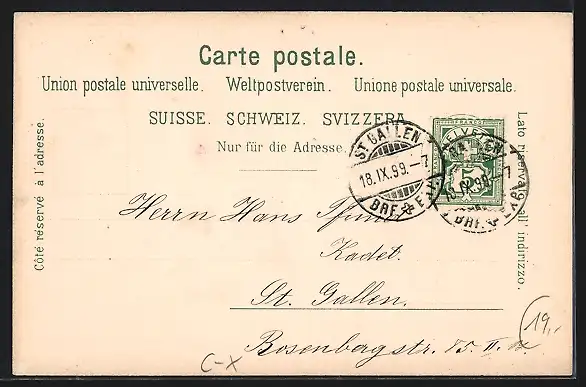 Carte postale.
Union postale universelle. Weltpostverein. Unione postale universale.
SUISSE. SCHWEIZ. SVIZZERA.
Nur für die Adresse.
Côté réservé à l'adresse.
Lato riservato all' indirizzo.
ST. GALLEN
18.IX.99.-7
BRF. EXP.
GALLEN
18.IX.99.-7
BRF. EXP.
5
Herrn Hans
Kadet.
St. Gallen.
Rosenbergstr. 85. II.
C-X
19,-